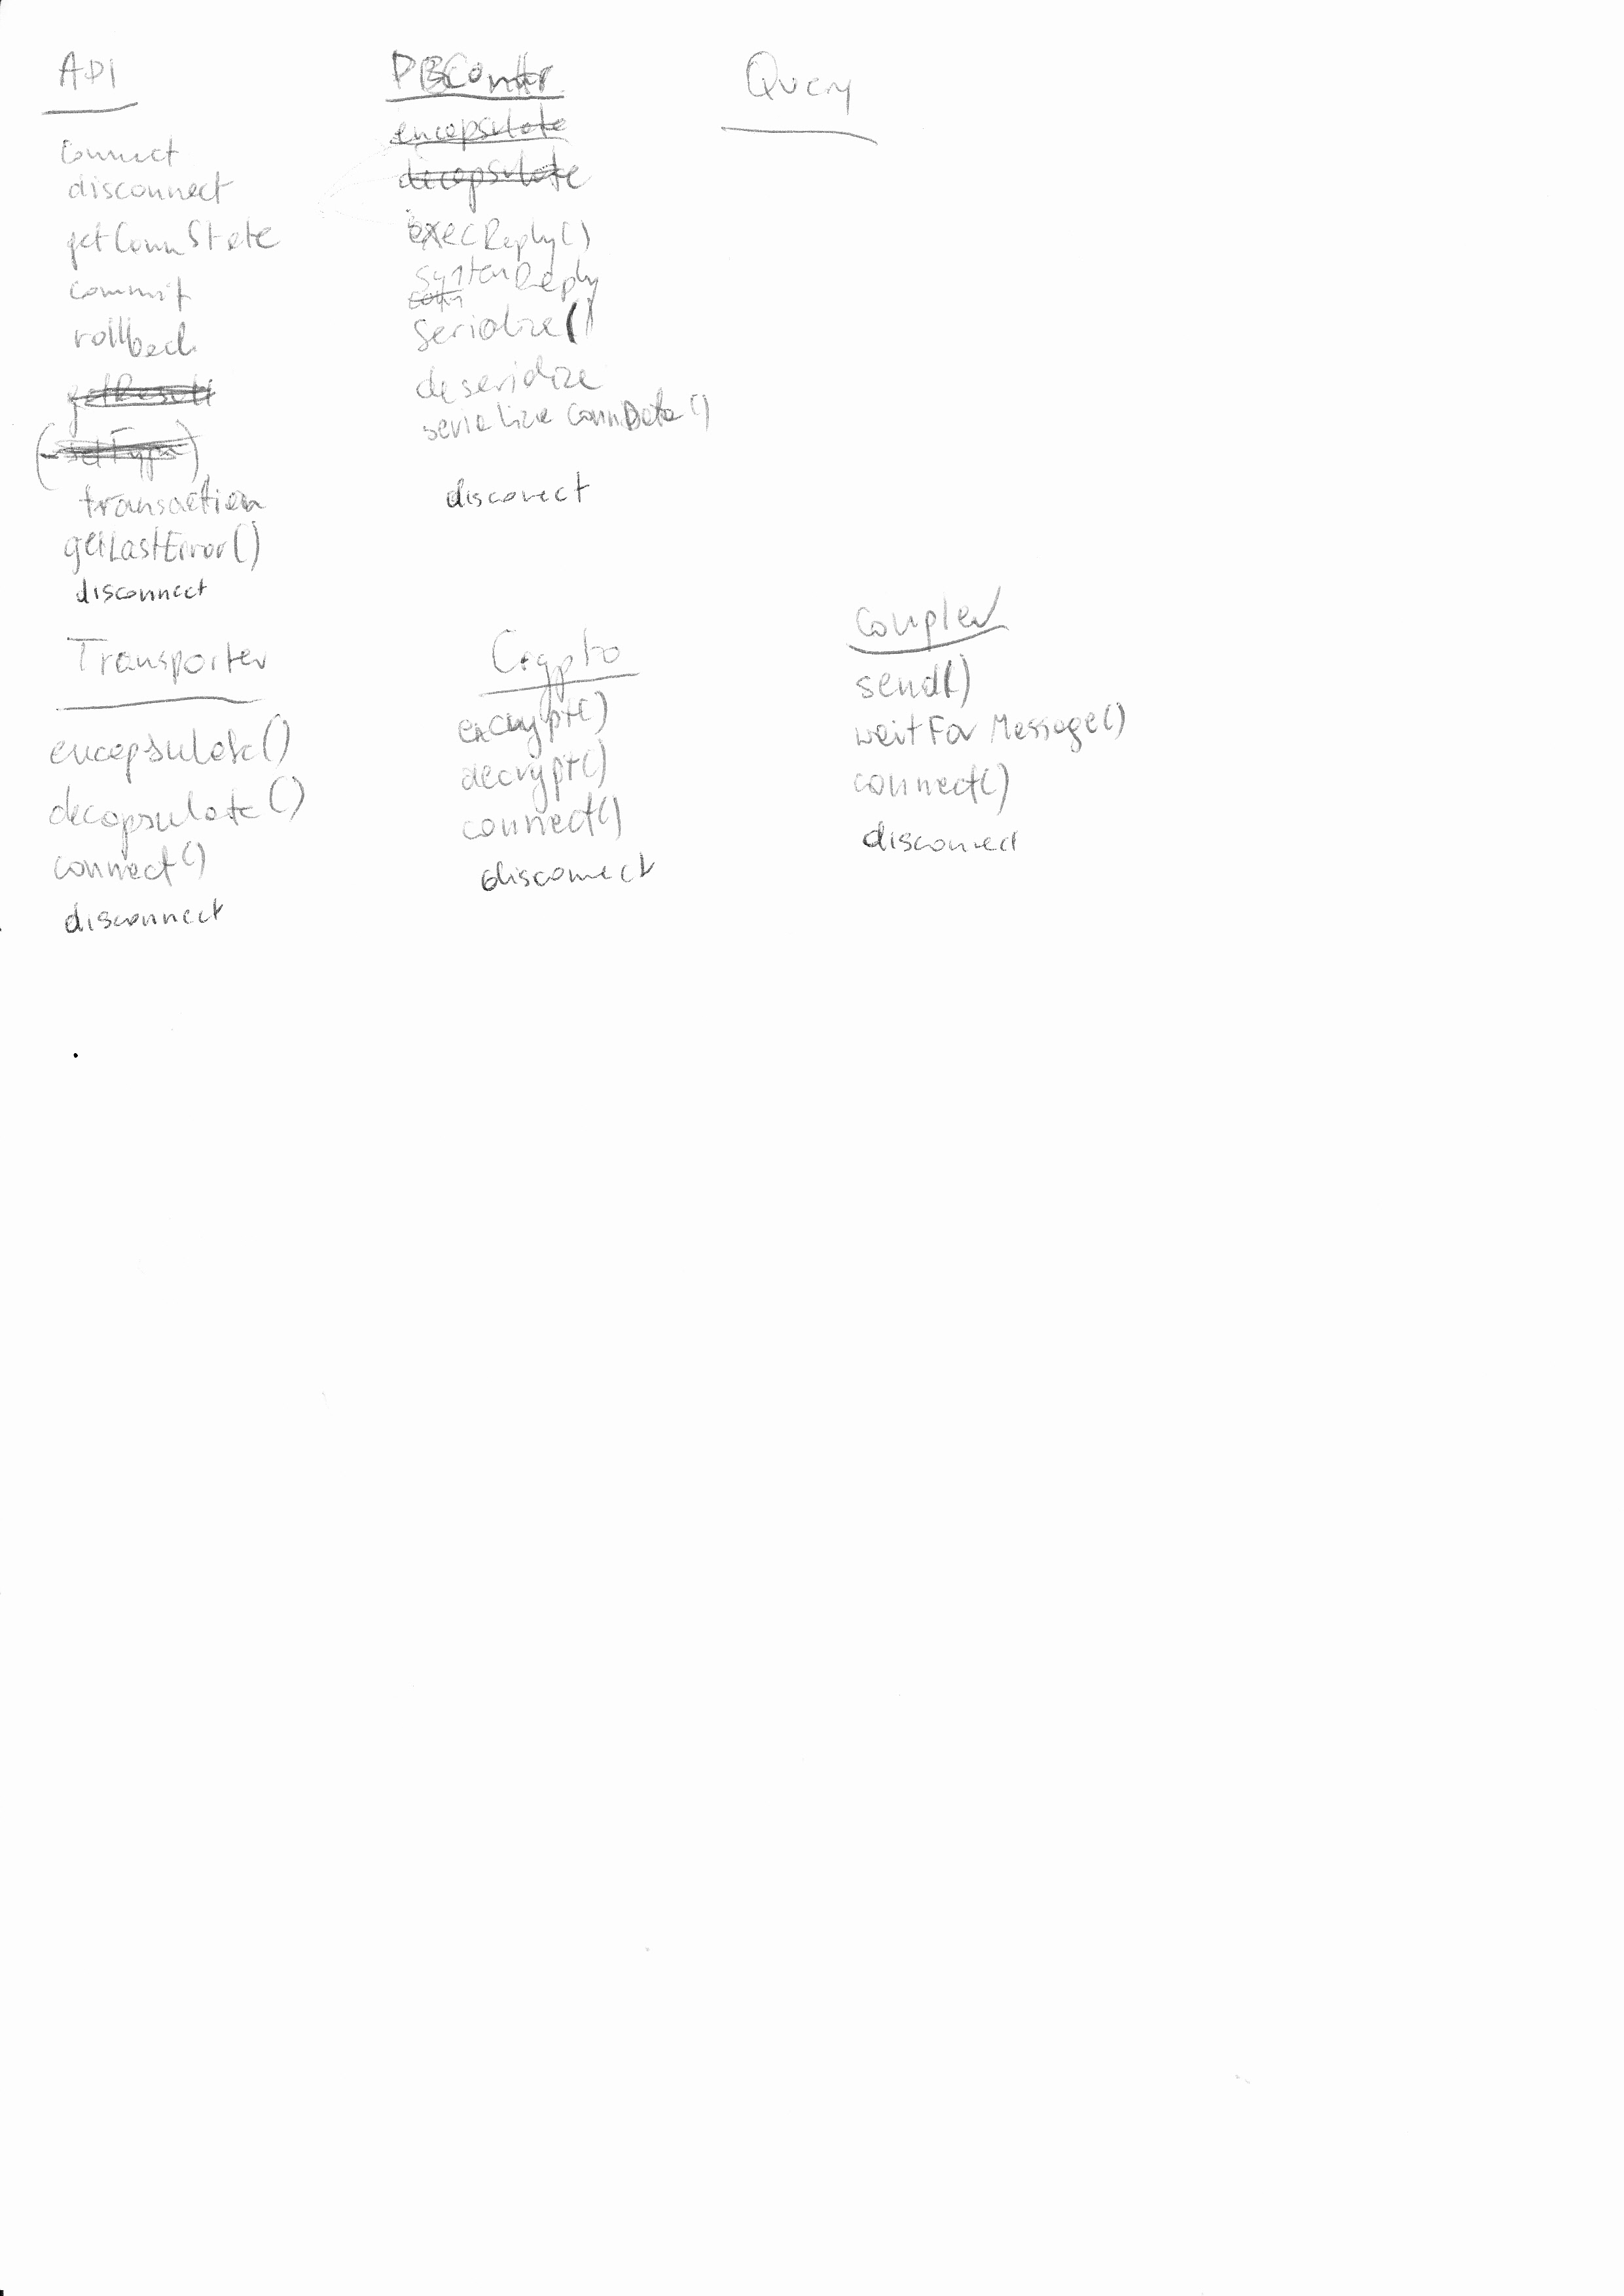 API
connect
disconnect
getConnState
commit
rollback
getResult
transaction
getLastError()
disconnect
encapsulate
decapsulate
execReply()
serialize()
deserialize
serialize ConnData()
disconect
Query
Transporter
encapsulate()
decapsulate()
connect()
disconnect
Crypto
encrypt()
decrypt()
connect()
disconnect
Coupler
send()
waitForMessage()
connect()
disconnect